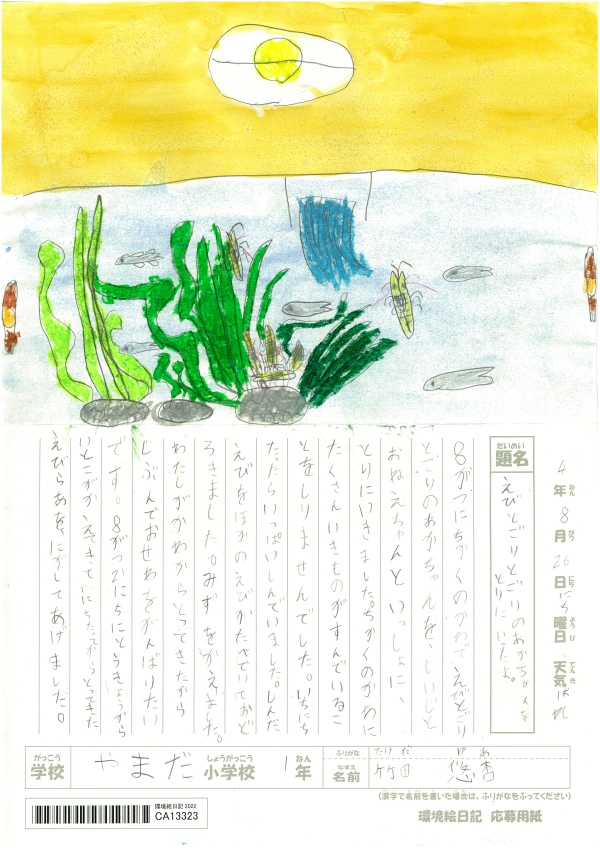 だいめい
題名
えびとごりとごりのあかちゃんを
とりにいったよ。
4年ねん8月がつ26日にちにち曜日ようび天気てんき 晴れ
8がつにちかくのかわで、えびとごり
とごりのあかちゃんを、じいじと
おねえちゃんと いっしょに、
とりにいきました。ちかくのかわに
たくさんいきものがすんでいるこ
とをしりませんでした。いちにち
たったらいっぱいしんでいました。しんだ
えびをほかのえびがたべていておど
ろきました。みずをかえました。
わたしがかわからとってきたから
じぶんでおせわをがんばりたい
です。8がつ にちにとうきょうから
いとこがかえってきて、 とってきた
えびらあを、にがしてあげました。
がっこう
学校
やまだ
しょうがっこう
小学校
1年ねん
ふりがな
たけだ ゆあ
なまえ
名前
竹田 悠杏
(漢字で名前を書いた場合は、ふりがなをふってください)
環境絵日記 2022
CA13323
環境絵日記 応募用紙